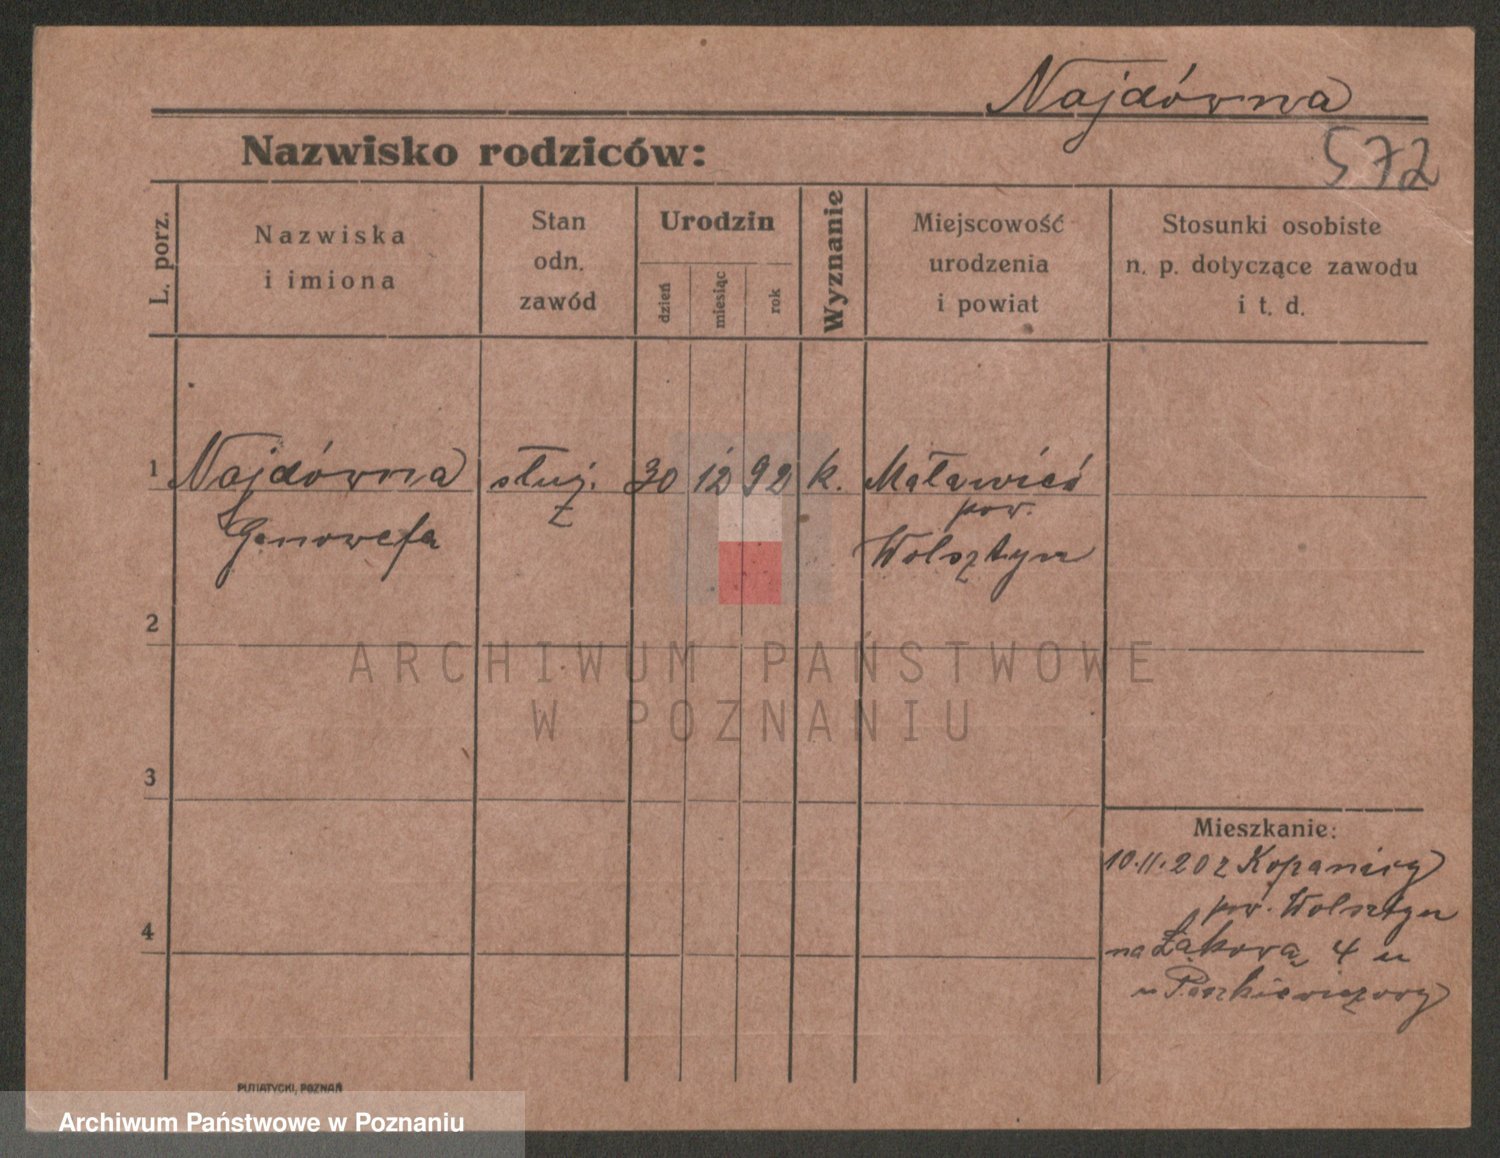 Najdówna
572
Nazwisko rodziców:
L. porz.
Nazwiska
i imiona
Stan
odn.
zawód
Urodzin
dzień
miesiąc
rok
Wyznanie
Miejscowość
urodzenia
i powiat
Stosunki osobiste
n. p. dotyczące zawodu
i t. d.
1 Najdówna służ. 30 12 92 k.
pow.
Genowefa Wolsztyn
2
ARCHIWUM PAŃSTWOWE
W POZNANIU
3
Mieszkanie:
10.11.20 z Kopanicy
pow. Wolsztyn
4
na Łąkową 4
u Paszkiewiczowy
PUTIATYCKI, POZNAŃ
Archiwum Państwowe w Poznaniu